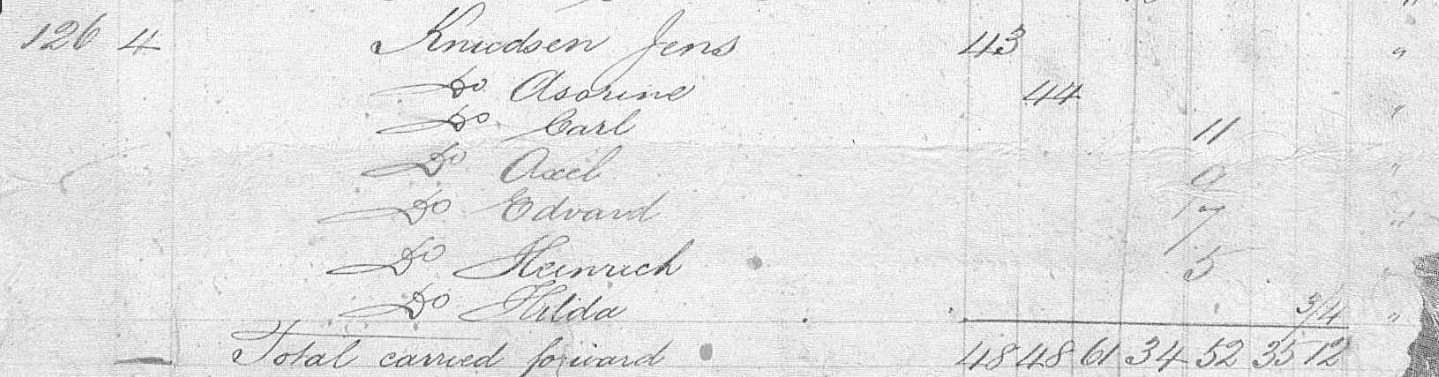 126 4 Knudsen Jens 43 "
Do Asorine 44 "
Do Carl 11 "
Do Axel 9 "
Do Edvard 7 "
Do Heinrich 5 "
Do Hilda 3/4 "
Total carried forward 48 48 61 34 52 35 12